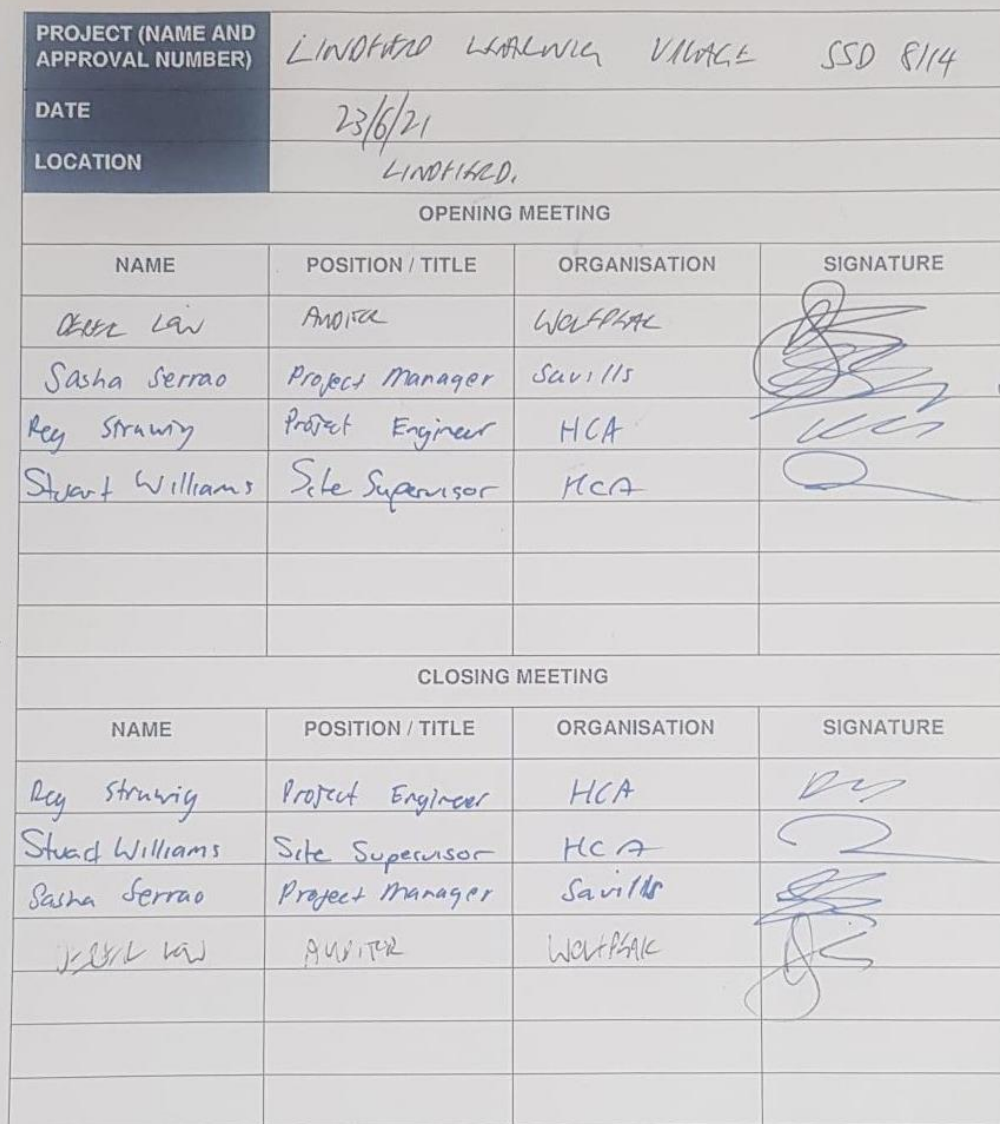 PROJECT (NAME AND APPROVAL NUMBER) LINDFIELD LEARNING VILLAGE SSD 8114
DATE 23/6/21
LOCATION LINDFIELD.
OPENING MEETING
NAME POSITION / TITLE ORGANISATION SIGNATURE
DEREK LOW AUDITOR WOLFPEAK
Sasha Serrao Project Manager Savills
Rey Struwig Project Engineer HCA
Stuart Williams Site Supervisor HCA
CLOSING MEETING
NAME POSITION / TITLE ORGANISATION SIGNATURE
Rey Struwig Project Engineer HCA
Stuart Williams Site Supervisor HCA
Sasha Serrao Project Manager Savills
DEREK LOW AUDITOR WOLFPEAK